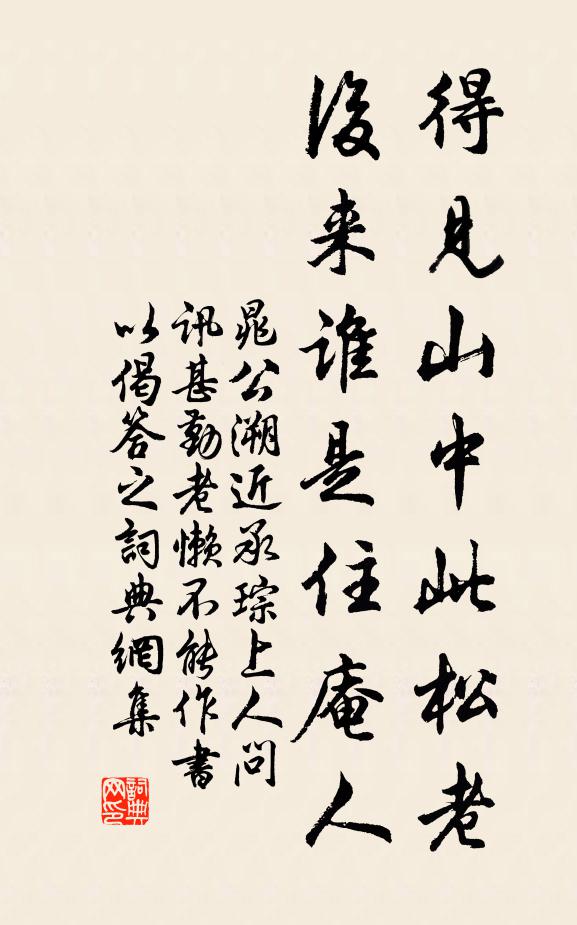 得見山中此松老
後来誰是住庵人
晁公溯近承琮上人問
訊甚勤老懶不能作書
以偈答之詞典網集
詞典
网印